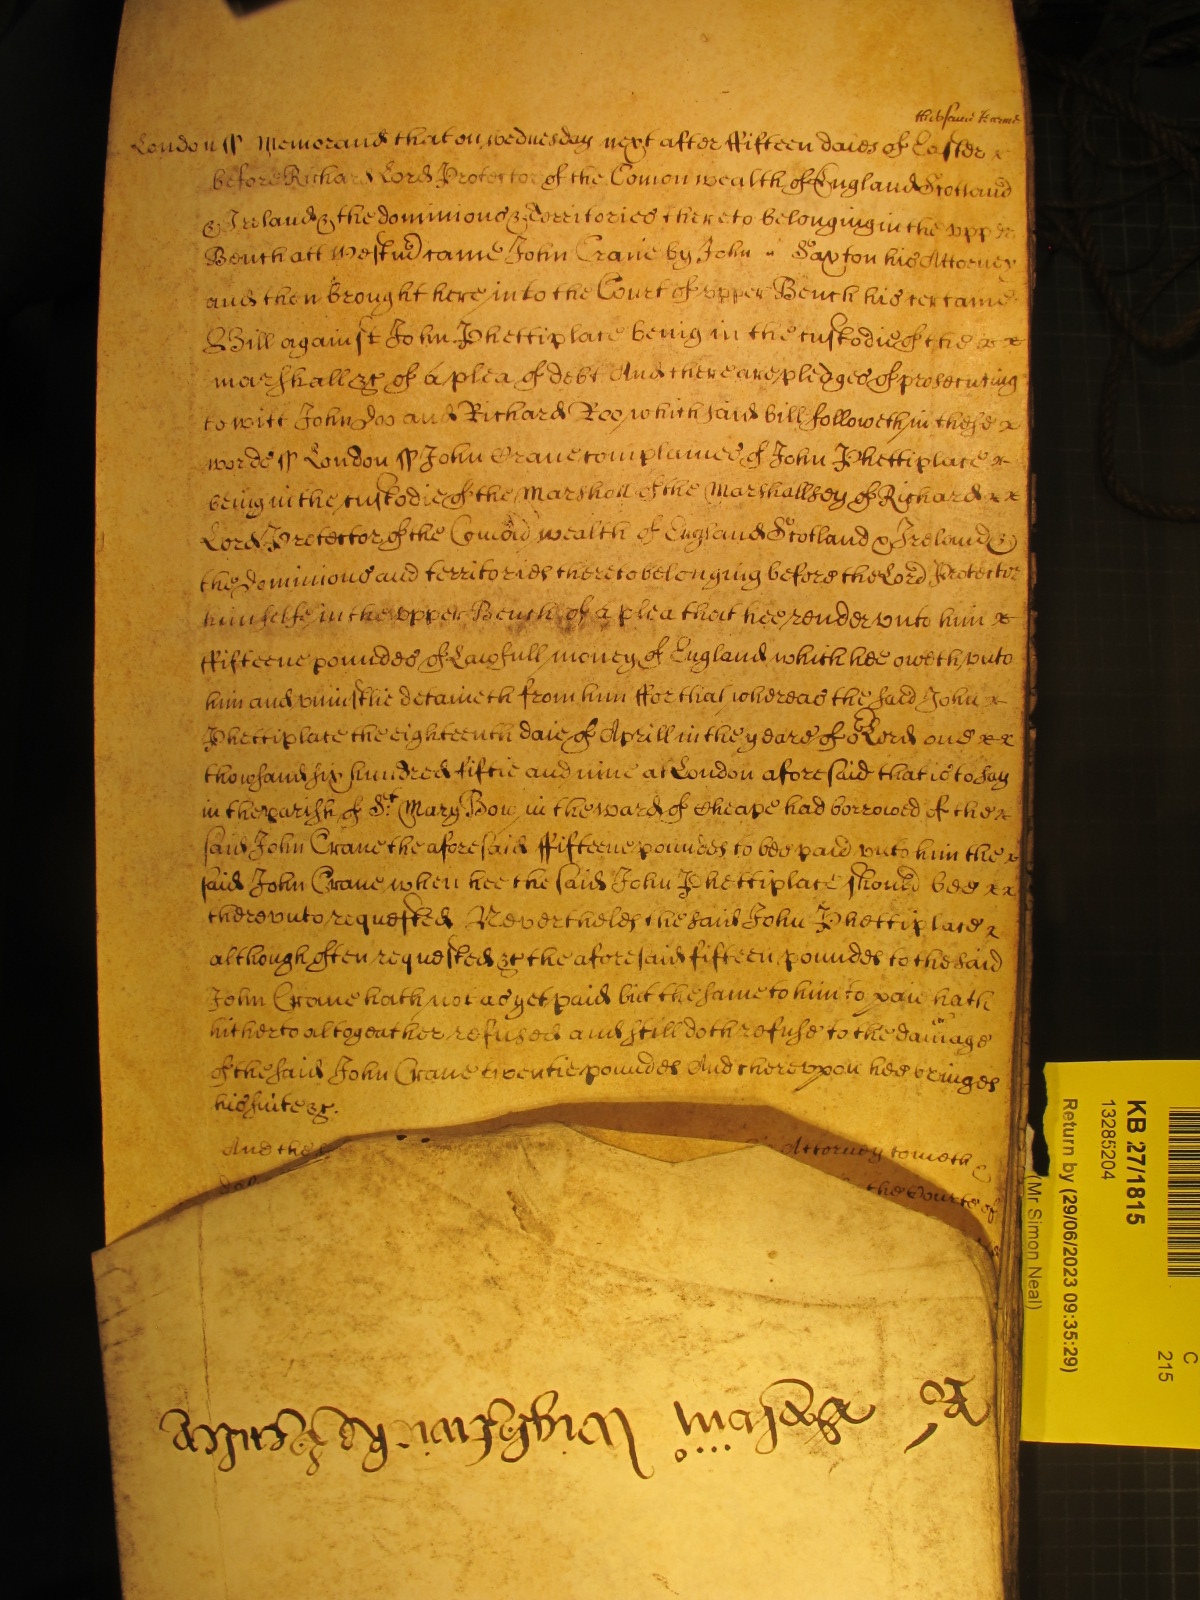 this same Terme
London ss Memorand that on wednesday next after ffifteen daies of Easter x
before Richard Lord Protector of the Comon wealth of England Scotland
& Ireland & the dominions & Territories thereto belonging in the vpper
Bench att Westm̃ came John Crane by John Saxton his Attorney
and then brought here into the Court of vpper Bench his certaine
Bill against John Phettiplace being in the custodie of the x x
marshall &c of a plea of debt And there are pledges of prosecuting
to witt John Doo and Richard Roo, which said bill followeth in these x
words ss London ss John Crane complaines of John Phettiplace x
being in the custodie of the Marshall of the Marshallsey of Richard x x
Lord Protector of the Comõ wealth of England Scotland & Ireland &
the dominions and territories thereto belonging before the Lord Protector
himselfe in the vpper Bench of a plea that hee render vnto him x
ffifteene poundes of Lawfull money of England which hee oweth vnto
him and viniustlie detaineth from him ffor that whereas the said John x
Phettiplace the eighteenth daie of Aprill in the yeare of oʳ Lord one x x
thowsand six hundred fiftie and nine at London aforesaid that is to say
in the parish of Sᵗ Mary Bow in the ward of Cheape had borrowed of the x
said John Crane the aforesaid ffifteene poundes to bee paid vnto him the x
said John Crane when hee the said John Phettiplace should bee x x
therevnto requested Neverthelesse the said John Phettiplace x
although often requested &c the aforesaid fifteen poundes to the said
John Crane hath not as yet paid but the same to him to paie hath
hitherto altogeather refused and still doth refuse to the damage
of the said John Crane twentie poundes And therevpon hee bringes
his suite &c.
And the Attorney cometh &
the Courte of
KB 27/1815
13285204
Return by (29/06/2023 09:35:29)
(Mr Simon Neal)
C
215